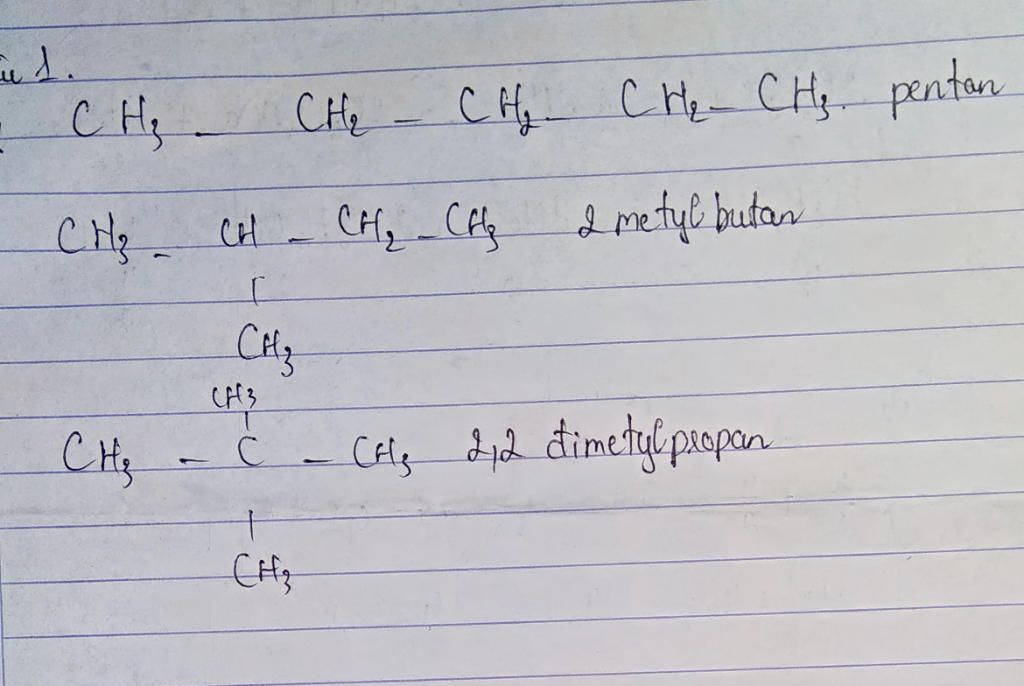 1.
CH₃ - CH₂ - CH₂ - CH₂ - CH₃. pentan
CH₃ - CH - CH₂ - CH₃ 2 metyl butan
CH₃
CH₃
CH₃ - C - CH₃ 2,2 đimetylpropan
CH₃